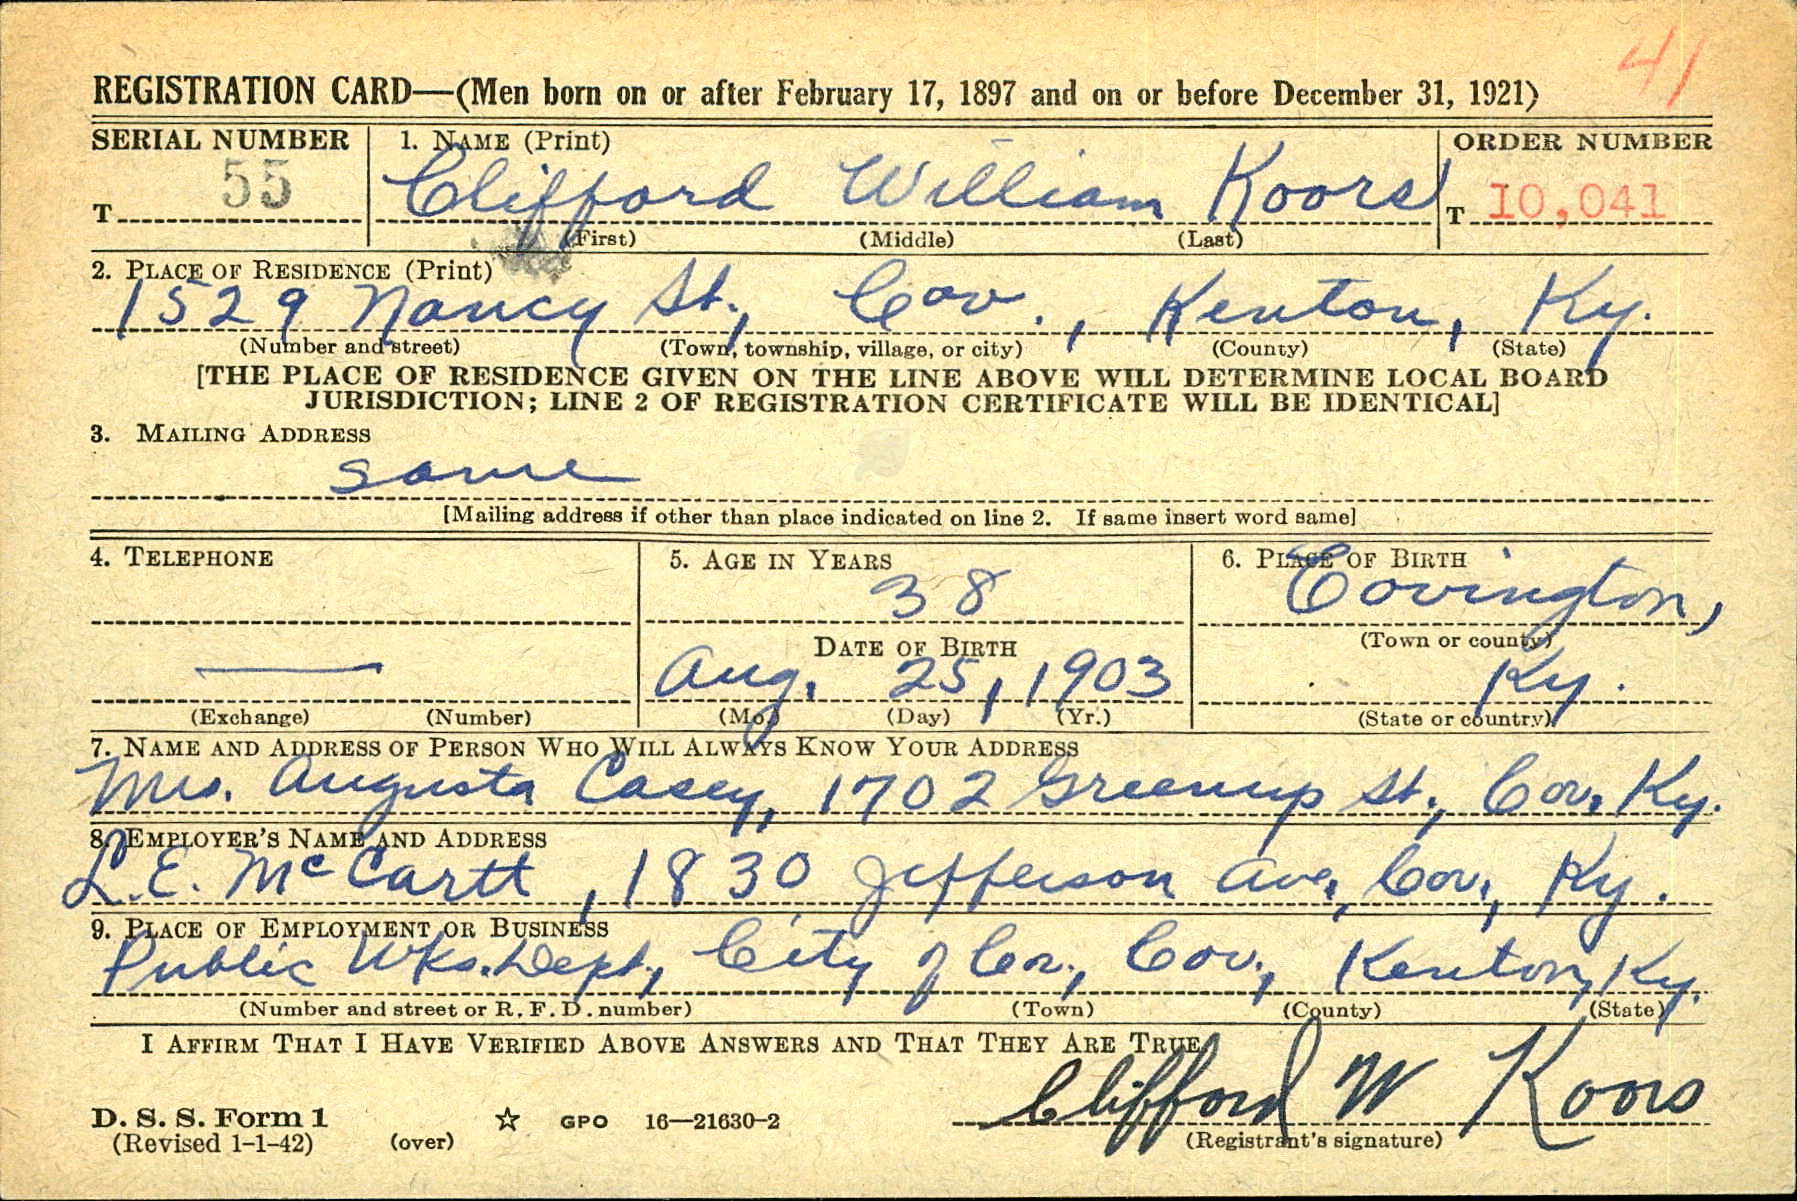 41
REGISTRATION CARD—(Men born on or after February 17, 1897 and on or before December 31, 1921)
SERIAL NUMBER 1. NAME (Print) ORDER NUMBER
T 55 Clifford William Koors T 10,041
(First) (Middle) (Last)
2. PLACE OF RESIDENCE (Print)
1529 Nancy St., Cov., Kenton, Ky.
(Number and street) (Town, township, village, or city) (County) (State)
[THE PLACE OF RESIDENCE GIVEN ON THE LINE ABOVE WILL DETERMINE LOCAL BOARD
JURISDICTION; LINE 2 OF REGISTRATION CERTIFICATE WILL BE IDENTICAL]
3. MAILING ADDRESS
same
[Mailing address if other than place indicated on line 2. If same insert word same]
4. TELEPHONE 5. AGE IN YEARS 6. PLACE OF BIRTH
38 Covington,
DATE OF BIRTH (Town or county)
— Aug. 25, 1903 Ky.
(Exchange) (Number) (Mo.) (Day) (Yr.) (State or country)
7. NAME AND ADDRESS OF PERSON WHO WILL ALWAYS KNOW YOUR ADDRESS
Mrs. Augusta Casey, 1702 Greenup St., Cov., Ky.
8. EMPLOYER'S NAME AND ADDRESS
L.E. McCartt, 1830 Jefferson Ave., Cov., Ky.
9. PLACE OF EMPLOYMENT OR BUSINESS
Public Wks. Dept., City of Cov., Cov., Kenton, Ky.
(Number and street or R. F. D. number) (Town) (County) (State)
I AFFIRM THAT I HAVE VERIFIED ABOVE ANSWERS AND THAT THEY ARE TRUE.
Clifford W Koors
D. S. S. Form 1 ☆ GPO 16—21630-2
(Revised 1-1-42) (over) (Registrant's signature)